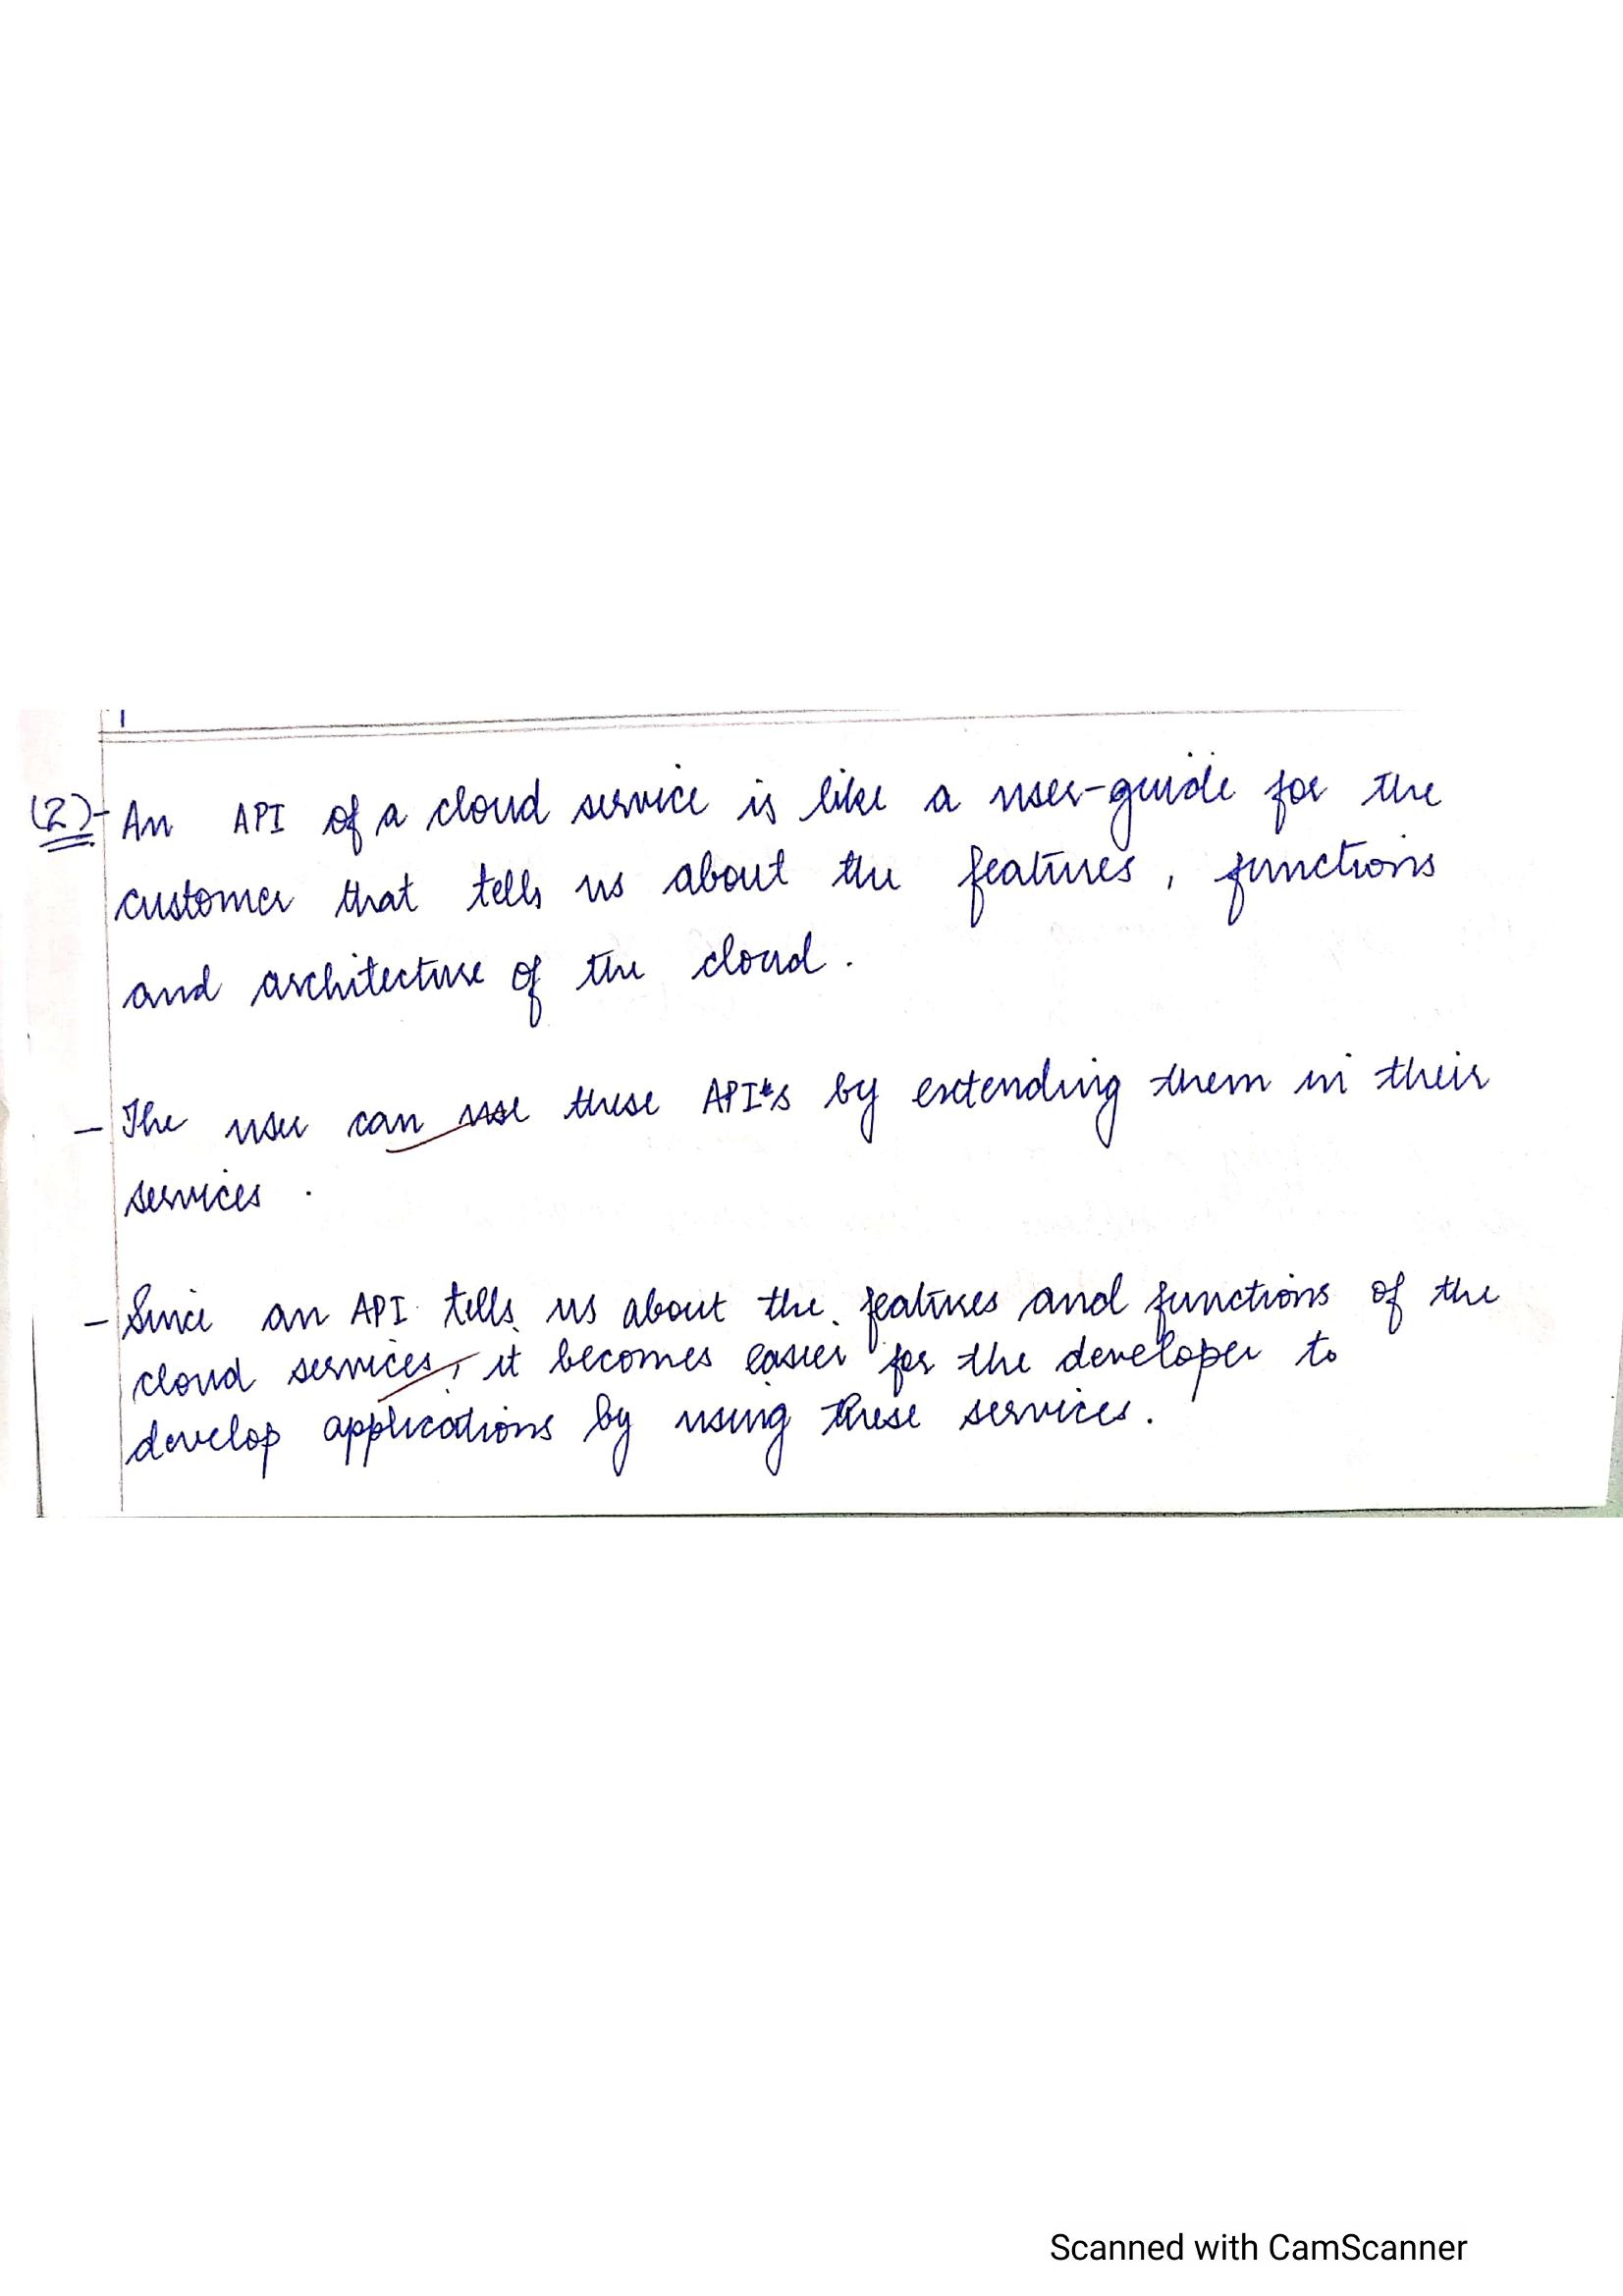 (2)- An API of a cloud service is like a user-guide for the
customer that tells us about the features, functions
and architecture of the cloud.
- The user can use these API's by extending them in their
services.
- Since an API tells us about the features and functions of the
cloud services, it becomes easier for the developer to
develop applications by using these services.
Scanned with CamScanner